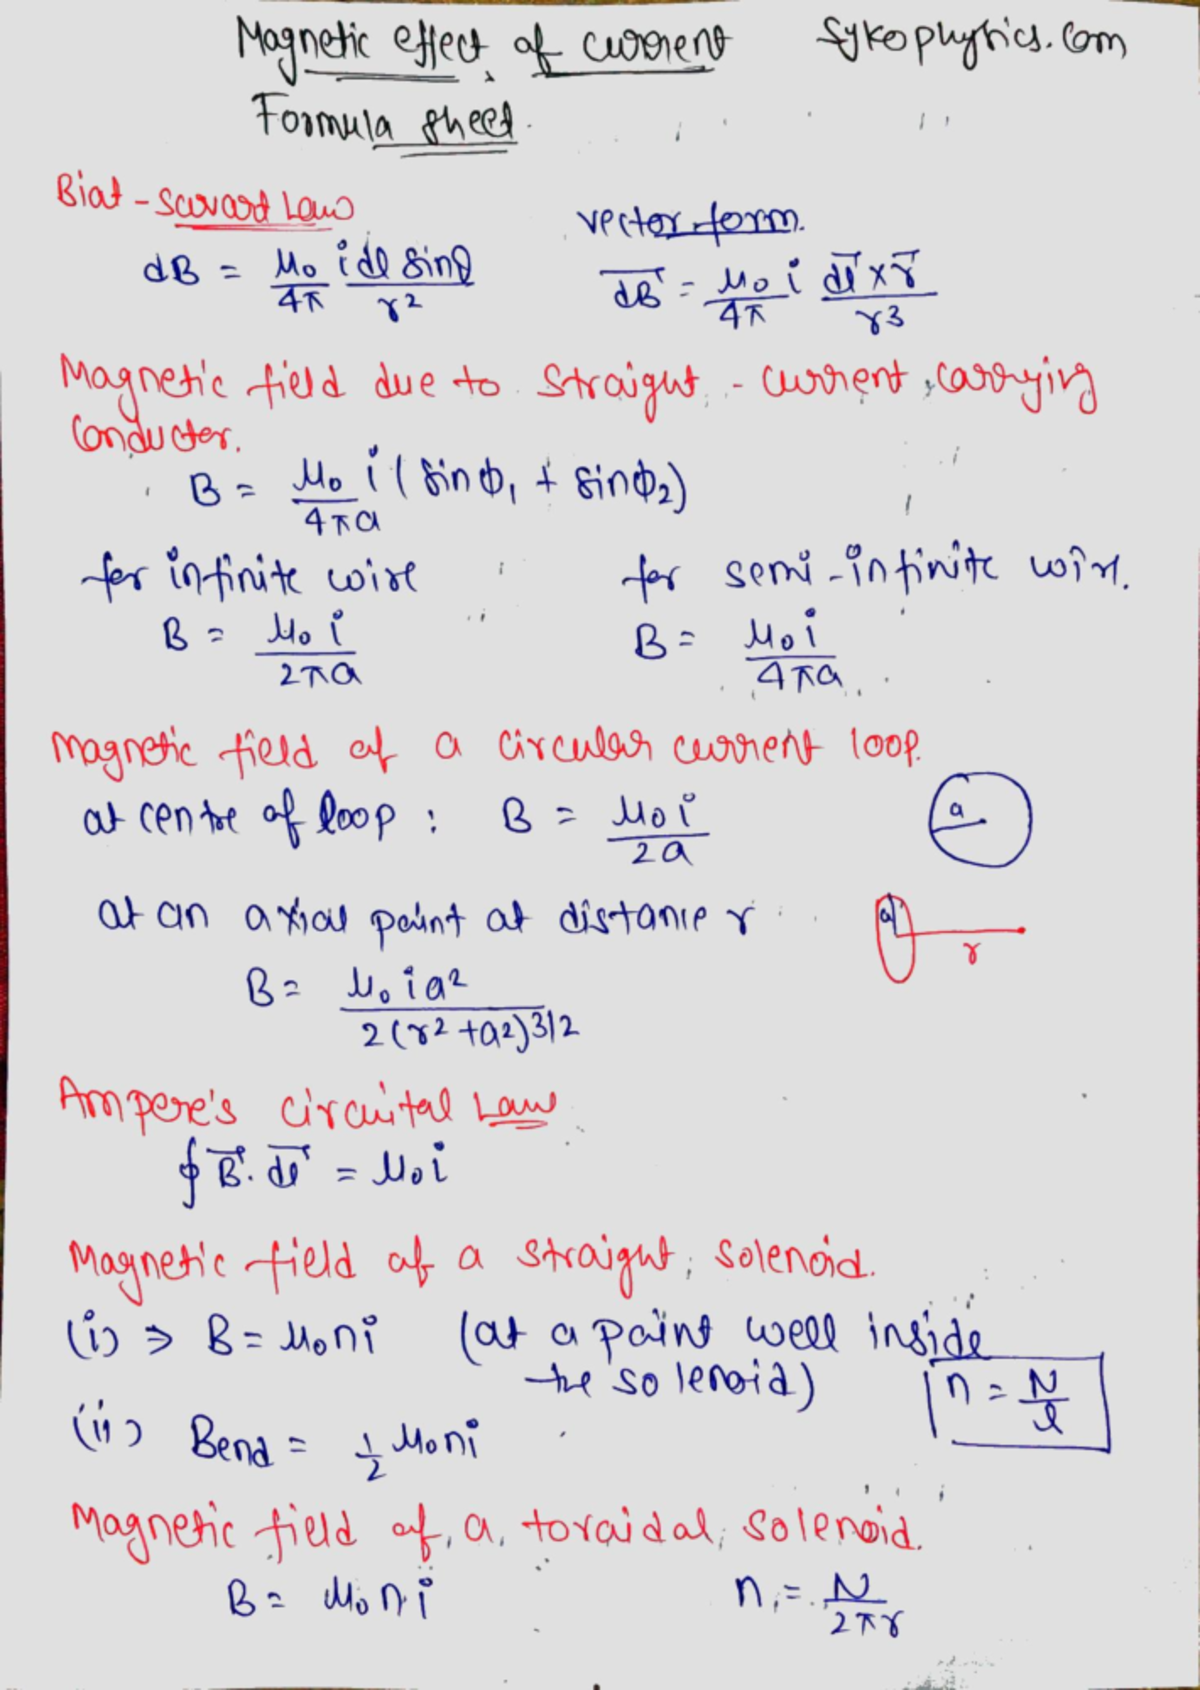 Magnetic effect of current Sykophysics.com
Formula sheet.
Biot - Savard Law
dB = μ₀/4π idl sinθ/r²
vector form.
dB⃗ = μ₀/4π i dl⃗ × r⃗/r³
Magnetic field due to straight - current carrying
conductor.
B = μ₀ i/4πa (sinφ₁ + sinφ₂)
for infinite wire
B = μ₀ i/2πa
for semi-infinite wire.
B = μ₀ i/4πa
Magnetic field of a circular current loop.
at centre of loop : B = μ₀ i/2a
a
at an axial point at distance r
a
r
B = μ₀ i a²/2(r² + a²)3/2
Ampere's circuital Law
∮ B⃗. dl⃗ = μ₀ i
Magnetic field of a straight solenoid.
(i) ⇒ B = μ₀ni (at a point well inside
the solenoid)
n = N/l
(ii) Bend = 1/2 μ₀ni
Magnetic field of a toroidal solenoid.
B = μ₀ni n = N/2πr